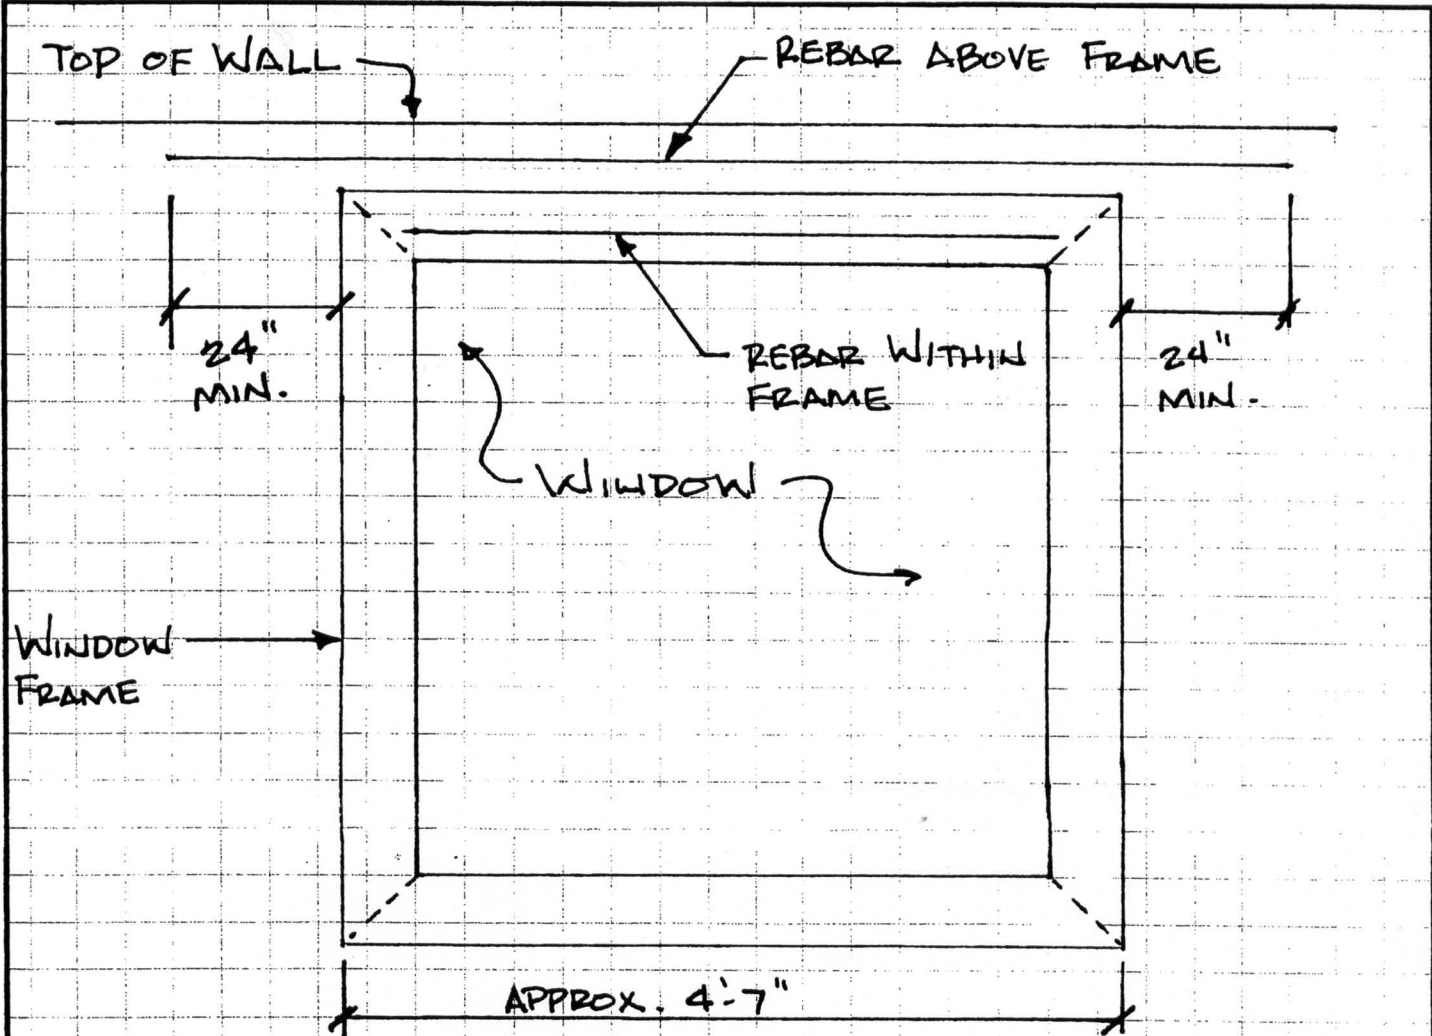 TOP OF WALL
REBAR ABOVE FRAME
24"
MIN.
REBAR WITHIN
FRAME
24"
MIN.
WINDOW
WINDOW
FRAME
APPROX. 4'-7"